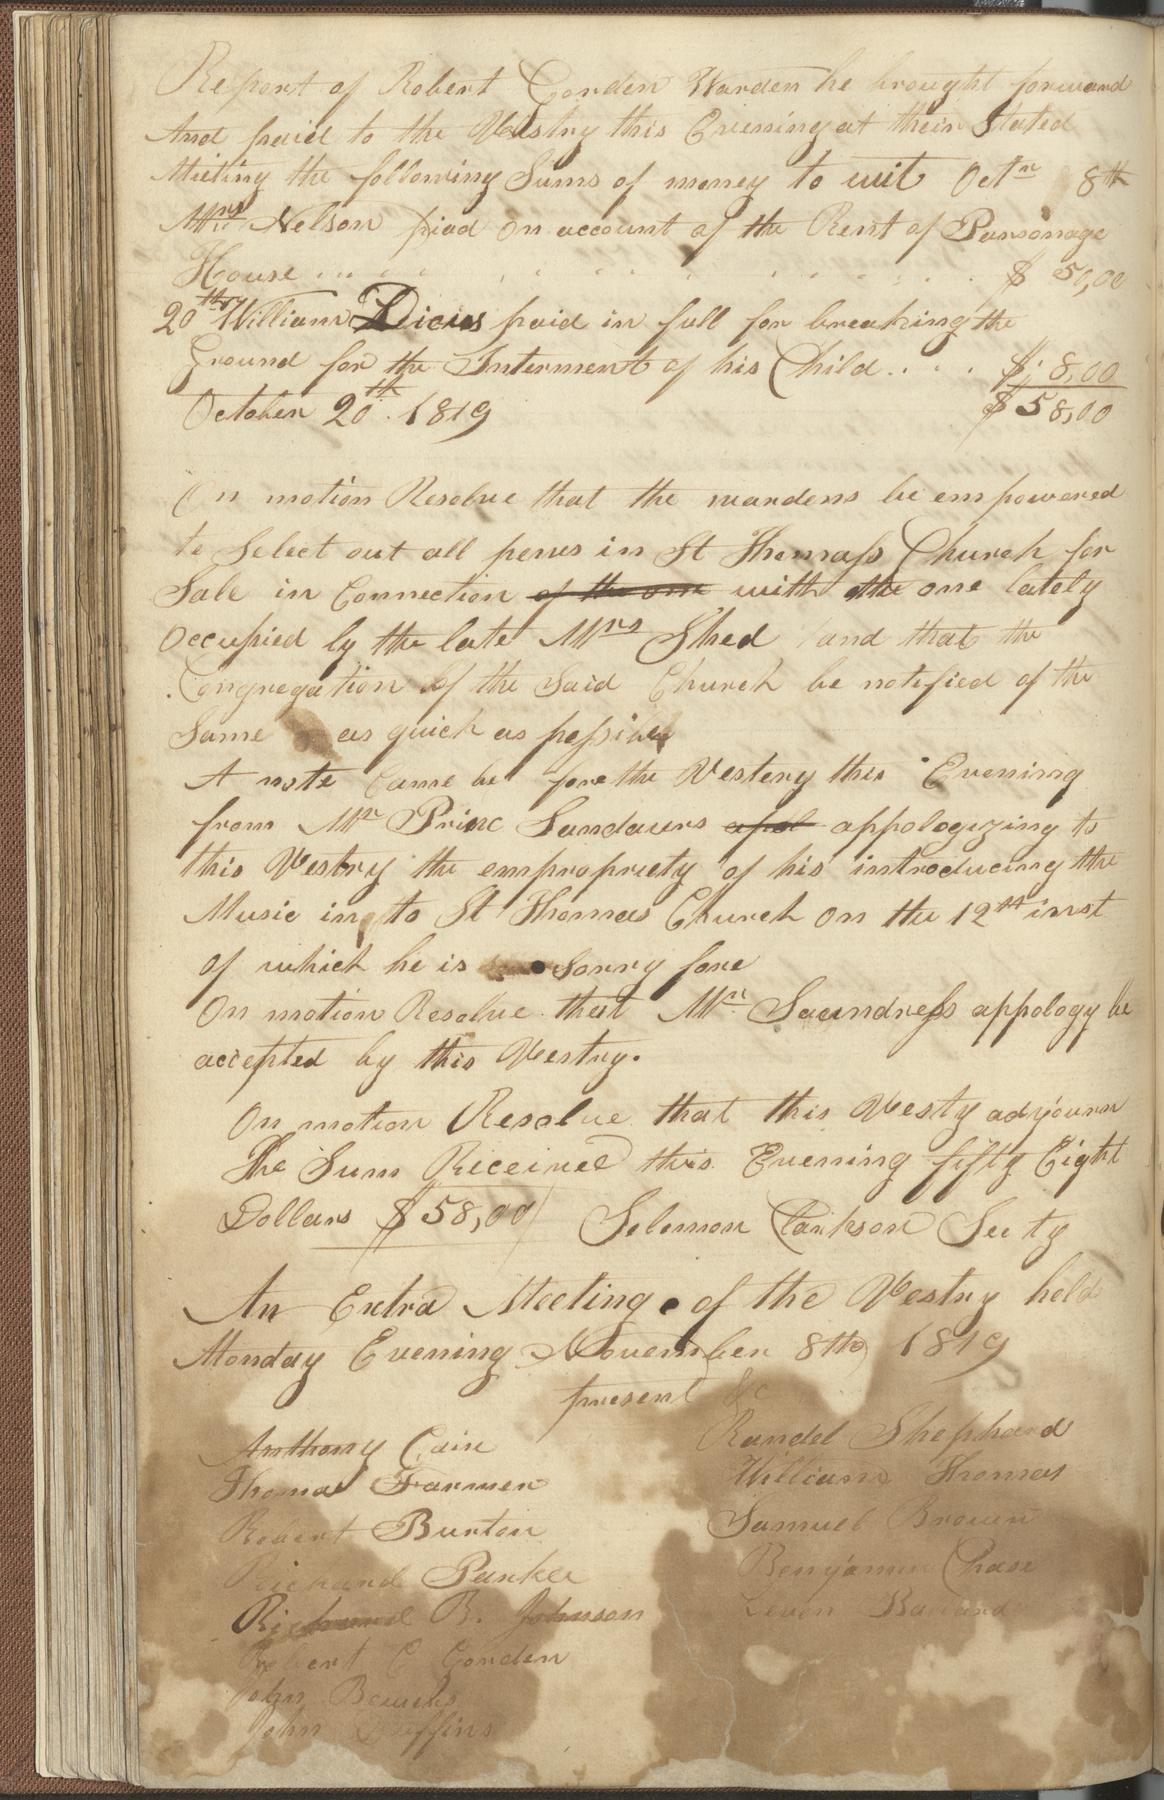 Report of Robert Gorden Warden he brought forward
And paid to the Vestry this Evening at their Stated
Meeting the following Sums of money to wit Octr 8th
Mrs Nelson piad on account of the Rent of Parsonage
House . . . . . . . . . . . . $ 50,00
20th William Dicies paid in full for breaking the
Ground for the Interment of his Child . . . . $ 8,00
October 20th 1819 $ 58,00
On motion Resolve that the wardens be empowered
to Select out all pews in St Thomass Church for
Sale in Connection of the one with the one lately
Occupied by the late Mrs Shed and that the
Congregation of the Said Church be notified of the
Same as quick as possible
A note Came be fore the Vestery this Evening
from Mr Prince Sandaurs apol appologizing to
this Vestry the empropriety of his introducing the
Music in to St Thomas Church on the 12th inst
of which he is sorry fore
On motion Resolve that Mr Saundress appology be
accepted by this Vestry.
On motion Resolve that this Vesty adjourn
The Sum Received this Evening fifty Eight
Dollars $ 58,00 Solomon Clarkson Secty
An Extra Meeting of the Vestry held
Monday Evening November 8th 1819
present &c
Anthony Cain Randel Shephard
Thomas Farmer William Thomas
Robert Burton Samuel Brown
Richard Parker Benjamin Chase
Richard B. Johnson Leven
Robert C Gorden
John Bowers
John